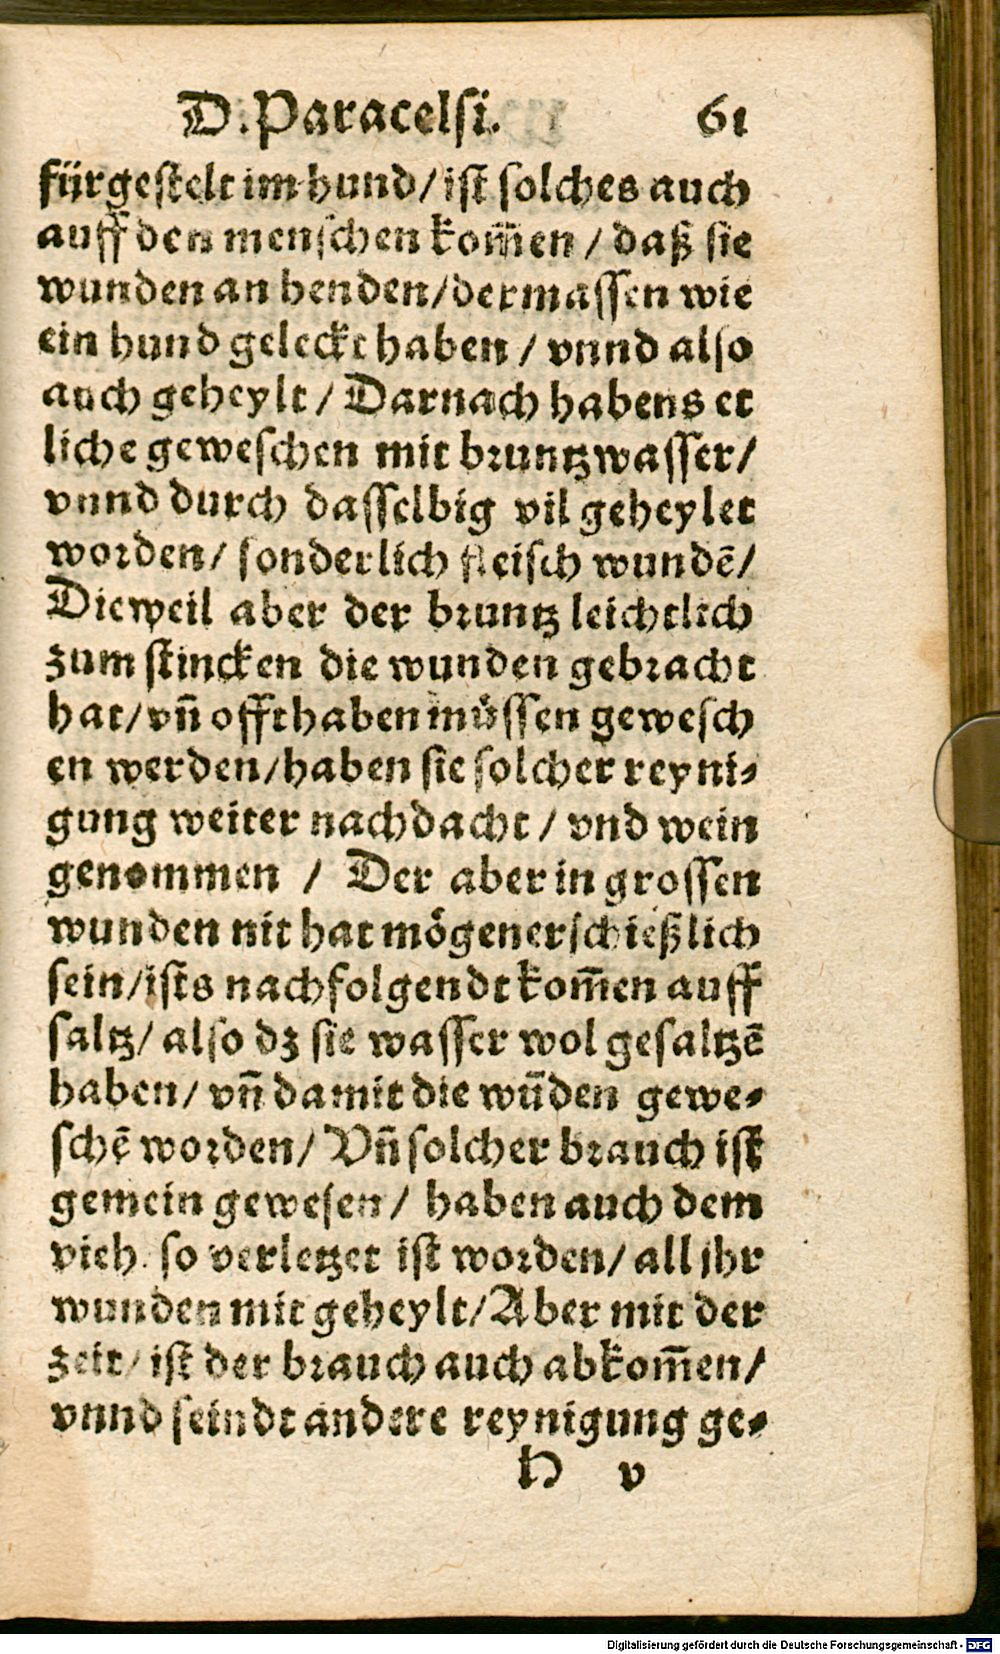 D. Paracelsi. 61
fürgestelt im hund/ ist solches auch
auff den menschen kom̄en / daß sie
wunden an henden/dermassen wie
ein hund geleckt haben / vnnd also
auch geheylt / Darnach habens et
liche geweschen mit bruntzwasser/
vnnd durch dasselbig vil geheylet
worden/ sonderlich fleisch wundē/
Dieweil aber der bruntz leichtlich
zum stincken die wunden gebracht
hat/ vn̄ offt haben müssen gewesch
en werden/haben sie solcher reyni-
gung weiter nachdacht / vnd wein
genommen / Der aber in grossen
wunden nit hat mögen erschießlich
sein/ists nachfolgendt kom̄en auff
saltz/ also dz sie wasser wol gesaltzē
haben/ vn̄ damit die wūden gewe-
schē worden/ Vn̄ solcher brauch ist
gemein gewesen / haben auch dem
vieh so verletzet ist worden/ all jhr
wunden mit geheylt/Aber mit der
zeit/ ist der brauch auch abkom̄en/
vnnd seindt andere reynigung ge-
H v
Digitalisierung gefördert durch die Deutsche Forschungsgemeinschaft - DFG